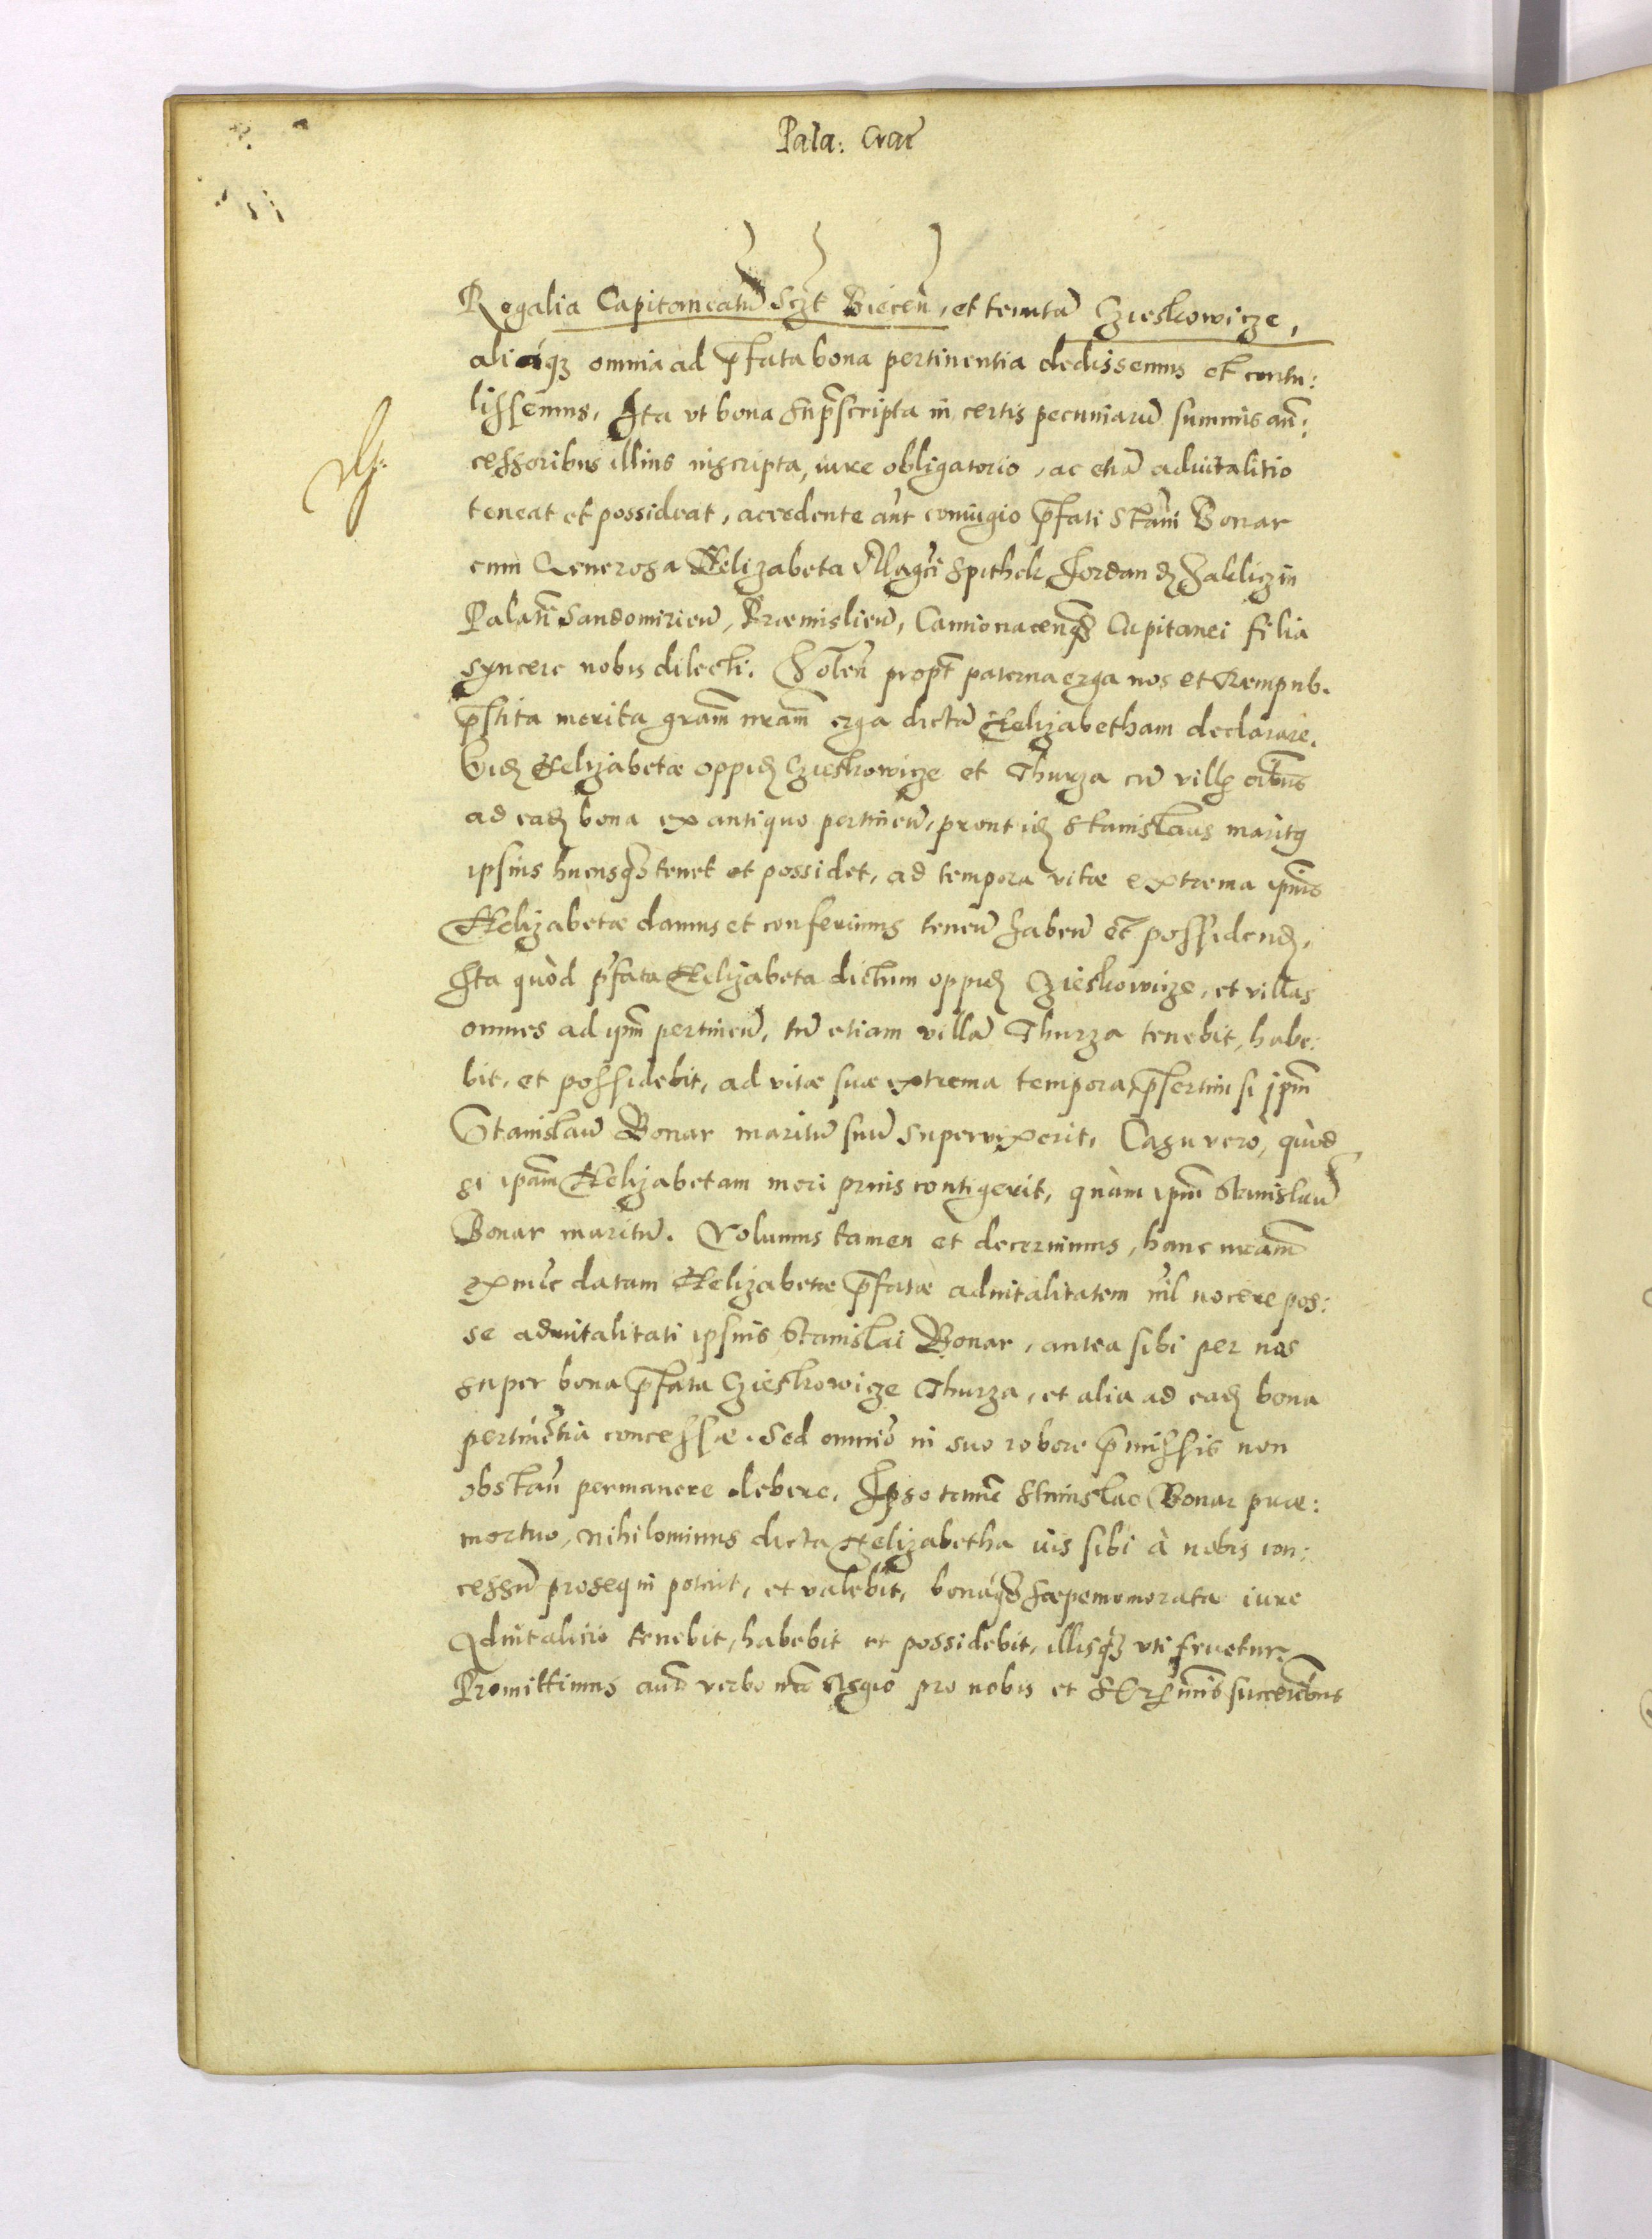 Pala: Crac̃
Regalia Capitaneatũ Sczt Biecen̄, et tenutã Czieskowicze,
aliaq́ꝫ omnia ad p̃fata bona pertinentia dedissemus et contu:
lissemus. Ita vt bona sup̃scripta in certis pecuniarũ summis añ:
cessoribus illius inscripta, iure obligatorio, ac etiã aduitalitio
teneat et possideat, accedente aũt coniugio p̃fati Stañi Bonar
cum Generosa Helizabeta Mag̃ci Spithek Jordan dꝫ Zakliczin
Palatñi Sandomirieñ, Præmislieñ, Camionacenq̃ꝫ Capitanei filia
syncere nobis dilecti. Voleñ propt̃ paterna erga nos et Rempub.
p̃stita merita grãm nrãm erga dictã Helizabetham declarare.
Eidꝫ Helizabetæ oppidꝫ Czieskowicze et Thurza cũ villꝭ oĩbus
ad eadꝫ bona ex antiquo pertineñ, prout idꝫ Stanislaus maritꝰ
ipsius hucusqꝫ tenet et possidet, ad tempora vitæ extrema ip̃ius
Helizabetæ damus et conferimus teneñ habeñ et possidendꝫ,
Ita quòd p̃fata Helizabeta dictum oppidꝫ Czieskowicze, et villas
omnes ad ip̃m pertineñ, tũ etiam villã Thurza tenebit, habe:
bit, et possidebit, ad vitæ suæ extrema tempora, p̃sertim si ip̃m
Stanislaũ Bonar maritũ suũ superuixerit, Casu verò, quòd
si ip̃am Helizabetam mori prius contigerit, quàm ip̃m Stanislaũ
Bonar maritũ. Volumus tamen et decernimus, hanc nrãm
ex nũc datam Helizabetæ p̃fatæ aduitalitatem nĩl nocere pos:
se aduitalitati ipsius Stanislai Bonar, antea sibi per nos
super bona p̃fata Czieskowicze Thurza, et alia ad eadꝫ bona
pertinẽtia concessæ. Sed omnio in suo robore p̃missis non
obstañ permanere debere. Ipso tamẽ Stanislao Bonar præ:
mortuo, nihilominus dicta Helizabetha ius sibi à nobis con:
cessũ prosequi poterit, et valebit, bonáq̃ꝫ sæpememorata iure
Aduitalicio tenebit, habebit et possidebit, illisq́ꝫ vti fruetur.
Promittimus aũt verbo nrõ Regio pro nobis et Ser̃mis successoribus